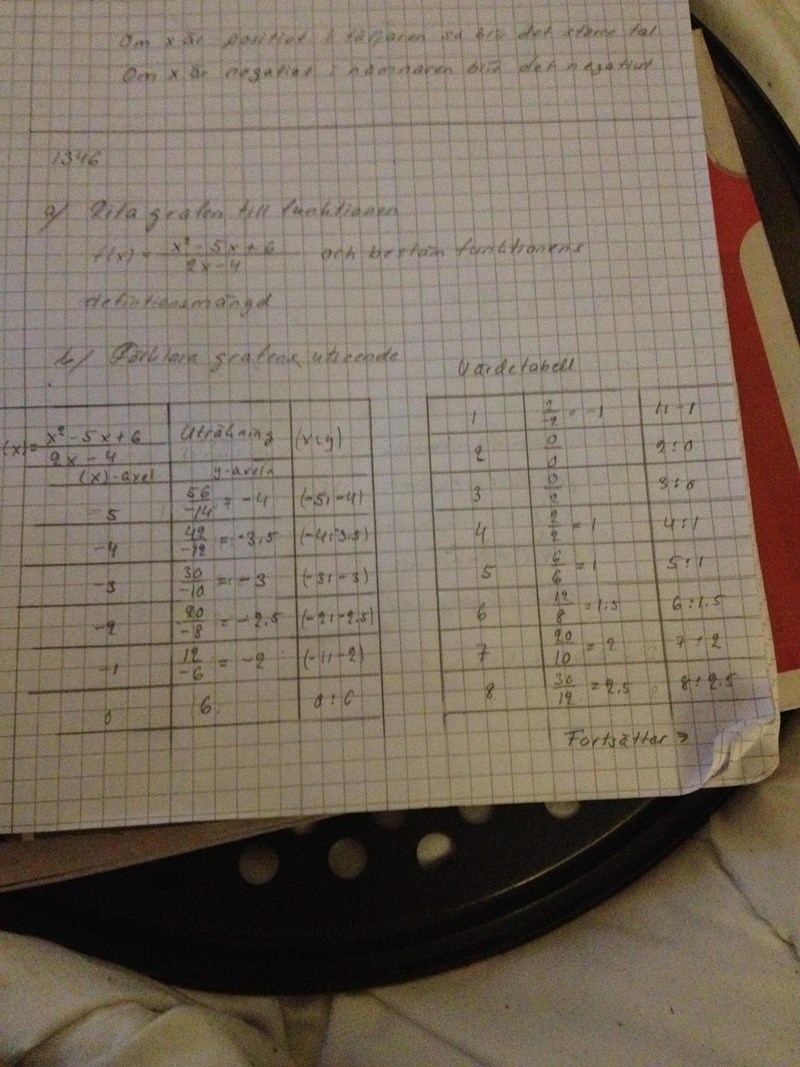 Om x är positivt i täljaren så blir det större tal
Om x är negativt i nämnaren blir det negativt
1346
a) Rita grafen till funktionen
f(x) = x² - 5x + 6 / 2x - 4 och bestäm funktionens
definitionsmängd
b) Förklara grafens utseende
Värdetabell
(x) = x² - 5x + 6 / 2x - 4 Uträkning (x;y)
(x)-axel y-axeln
5 56/-14 = -4 (-5;-4)
-4 42/-12 = -3,5 (-4;3,5)
-3 30/-10 = -3 (-3;-3)
-2 20/-8 = -2,5 (-2;-2,5)
-1 12/-6 = -2 (-1;-2)
0 6 0;6
1 2/-2 = -1 1;-1
2 0/0 2;0
3 0/2 3;0
4 2/2 = 1 4;1
5 6/6 = 1 5;1
6 12/8 = 1,5 6;1,5
7 20/10 = 2 7;2
8 30/12 = 2,5 8;2,5
Fortsätter →